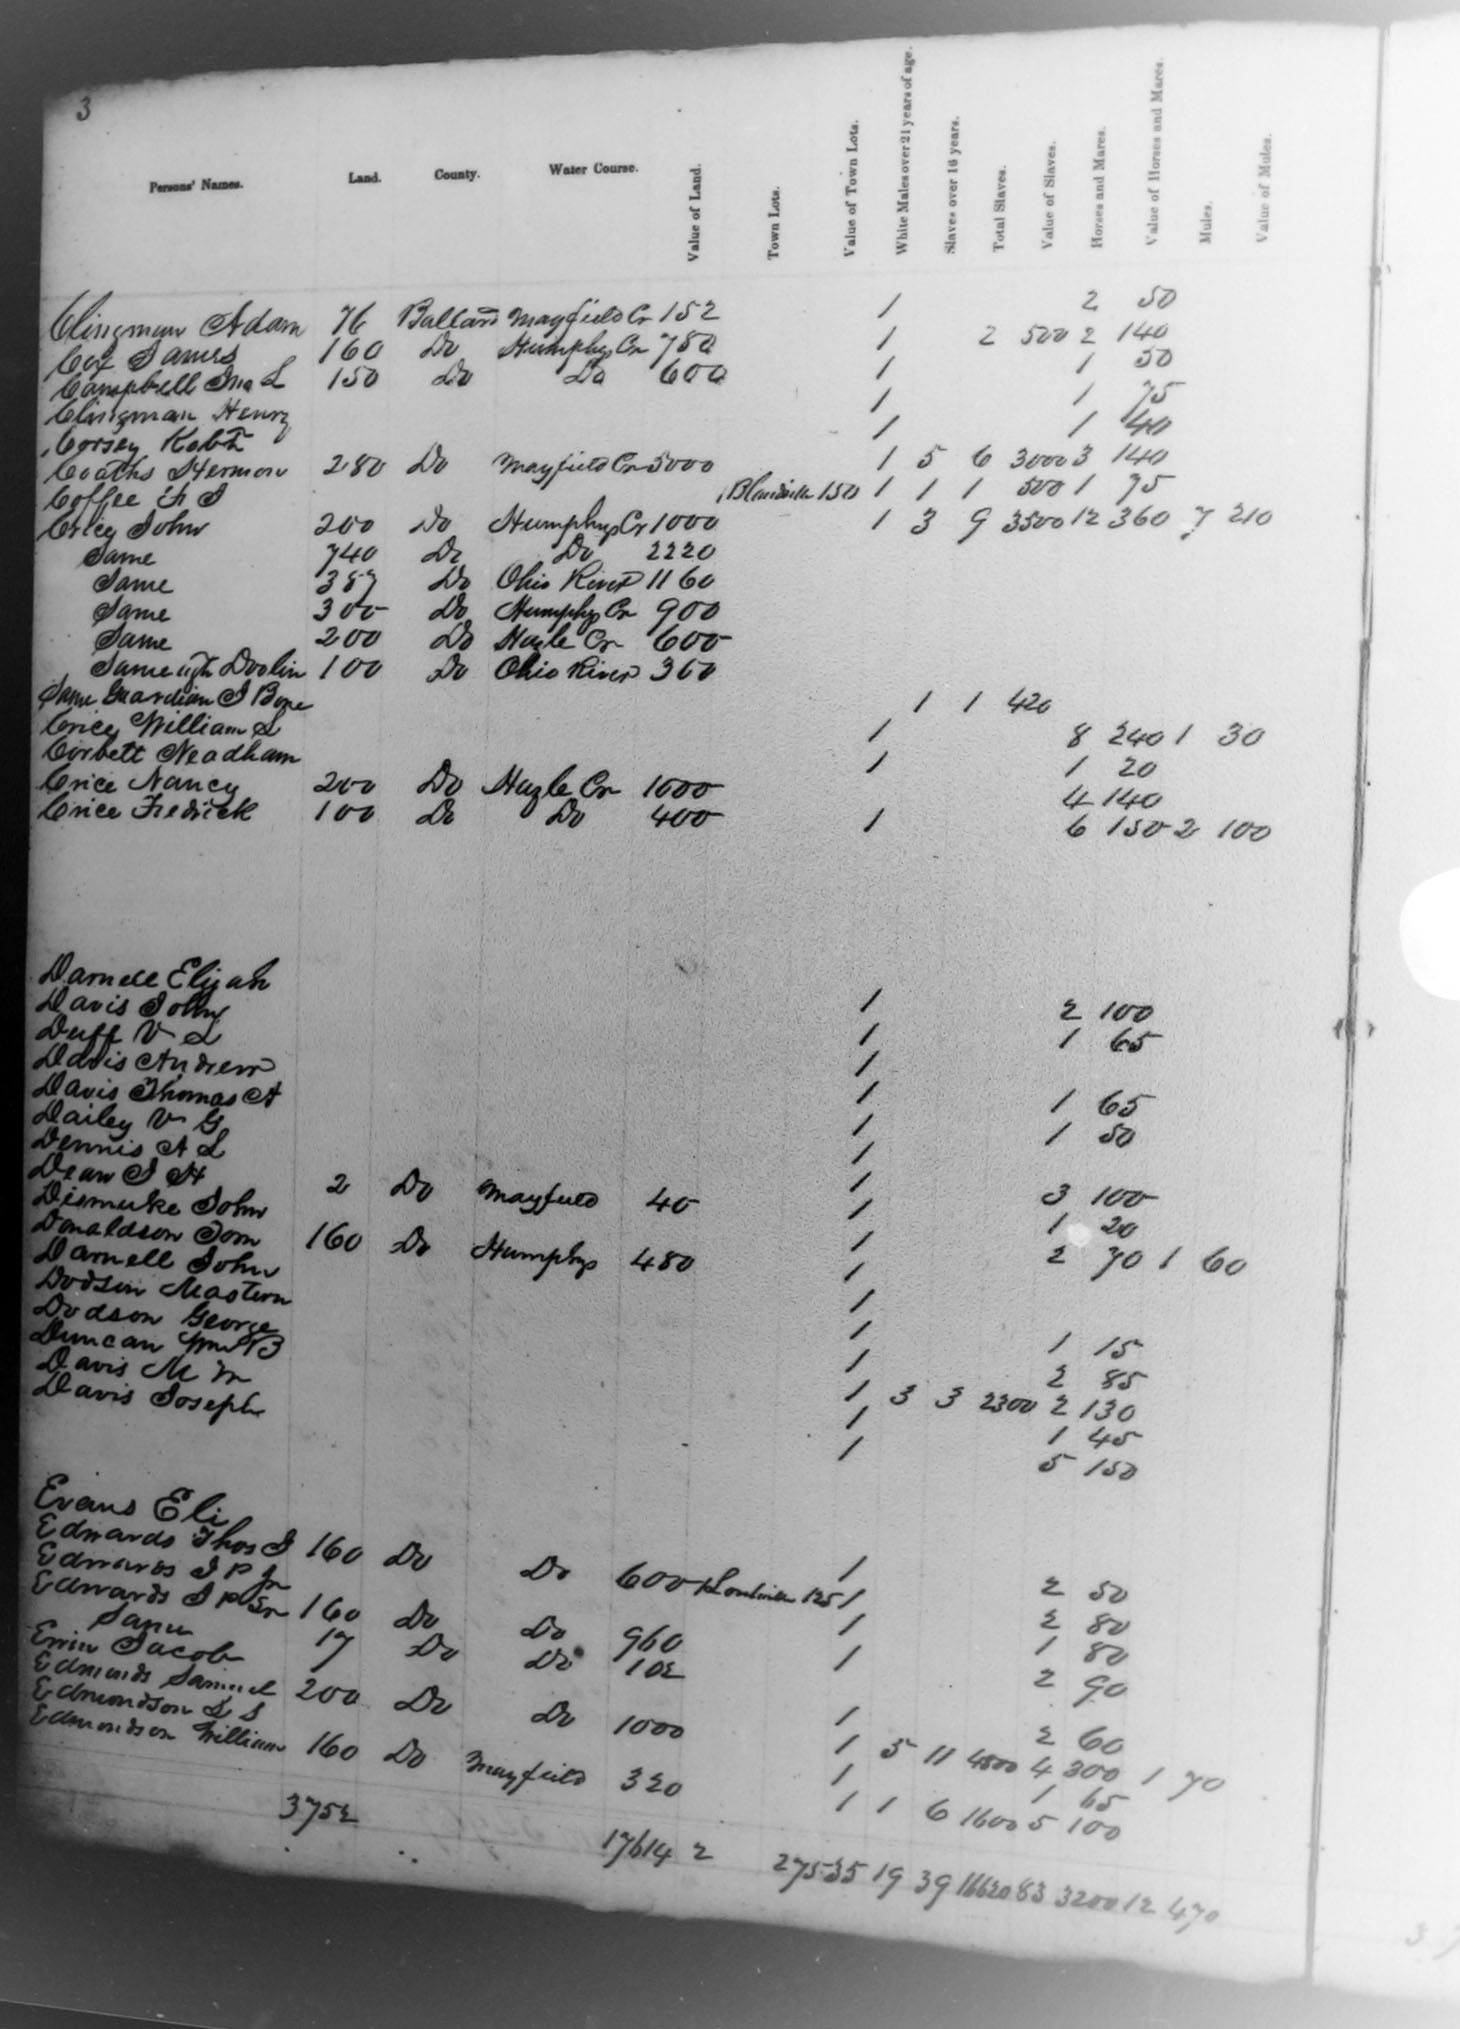 3
Persons' Names. Land. County. Water Course. Value of Land. Town Lots. Value of Town Lots. White Males over 21 years of age. Slaves over 16 years. Total Slaves. Value of Slaves. Horses and Mares. Value of Horses and Mares. Mules. Value of Mules.
Clingman Adam 76 Ballard Mayfield Cr 152 1 2 50
Cox James 160 Do Humphys Cr 780 1 2 500 2 140
Campbell Jno L 150 Do Do 600 1 1 50
Clingman Henry 1 1 75
Corsey Robt 1 1 40
Coaths Hermon 280 Do Mayfield Cr 5000 1 5 6 3000 3 140
Coffee F J 1 Blandville 150 1 1 1 500 1 75
Cricy John 200 Do Humphys Cr 1000 1 3 9 3500 12 360 7 210
Same 740 Do Do 2220
Same 387 Do Ohio River 1160
Same 300 Do Humphys Cr 900
Same 200 Do Hazle Cr 600
Same Doolin 100 Do Ohio River 300
Same Guardian J 1 1 420
Cricy William L 1 8 240 1 30
Corbett Neadham 1 1 20
Crice Nancy 200 Do Hazle Cr 1000 4 140
Crice Fredrick 100 Do Do 400 1 6 150 2 100
Darnell Elijah 1 2 100
Davis John 1 1 65
Duff V L 1
Davis Andrew 1 1 65
Davis Thomas A 1 1 50
Dailey V G 1
Dennis A L 1 3 100
Dean J H 2 Do Mayfield 40 1 1 20
Dismuke John 1 2 70 1 60
Donaldson Tom 160 Do Humphys 480 1
Darnell John 1
Dodson Mastern 1 1 15
Dodson George 1 2 85
Duncan Wm B 1 3 3 2300 2 130
Davis M M 1 1 45
Davis Joseph 1 5 150
Evans Eli 1 2 50
Edwards Thos J 160 Do Do 600 1 125 1 2 80
Edwards J P Jr 1 1 80
Edwards J P Sr 160 Do Do 960 1 2 90
Same 17 Do Do 102
Erwin Jacob 1 2 60
Edmonds Samuel 200 Do Do 1000 1 5 11 4800 4 300 1 70
Edmondson L S 1 1 65
Edmondson William 160 Do Mayfield 320 1 1 6 1600 5 100
3752 17614 2 275 35 19 39 16620 83 3200 12 470